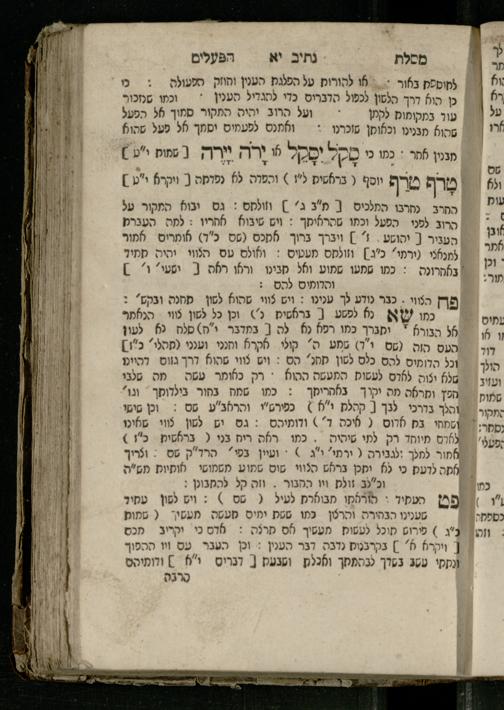 מסלת נתיב יא הפעלים
לתוספת באור · או להורות על הפלגת הענין וחוזק הפעולה : כי
כן הוא דרך הלשון לכפול הדברים כדי להגדיל הענין · וכמו שנזכור
עוד במקומות לקמן · ועל הרוב יהיה המקור סמוך אל הפעל
שהוא מבנינו וכאותן שזכרנו · ואמנם לפעמים יסמך אל פעל שהוא
מבנין אחר : כמו כי סָקֹל יִסָּקֵל או יָרֹה יִיָּרֶה [ שמות י״ט ]
טָרֹף טֹרַף יוסף ( בראשית ל״ז ) והפדה לא נפדתה [ ויקרא י״ט ]
החרב נחרבו המלכים [ מ״ב ג׳ ] וזולתם : גם יבוא המקור על
הרוב לפני הפעל וכמו שהראיתך : ויש שיבוא אחריו : למה העברת
העביר [ יהושע ז׳ ] ויברך ברוך אתכם (שם כ״ד) אומרים אמור
למנאצי (ירמי׳ כ״ג) וזולתם מעטים : ואולם עם הצווי יהיה תמיד
באחרונה : כמו שמעו שמוע ואל תבינו וראו ראה [ ישעי׳ ו׳ ]
והדומים להם :
פח הצווי · כבר נודע לך ענינו : ויש צווי שהוא לשון תחנה ובקש׳ :
כמו שָׂא נא לפשע [ בראשית נ׳ ) וכן כל לשון צווי הנאמר
אל הבורא יתברך כמו רפא נא לה [ במדבר י״ב) סלח נא לעון
העם הזה (שם י״ד) שמע ה׳ קולי אקרא וחנני וענני (תהלי׳ כ״ז]
וכל הדומים להם כלם לשון תחנ׳ הם : ויש צווי שהוא דרך גזום דהיינו
שלא יצוה לאדם לעשות המעשה ההוא · רק כאומר עשה מה שלבי
חפץ ותראה מה יקרך באחריתך : כמו שמח בחור בילדותך וגו׳
והלך בדרכי לבך [ קהלת י״א ) כפירש״י והראב״ע שם : וכן שישי
ושמחי בת אדום ( איכה ד׳ ) ודומיהם : גם יש לשון צווי שאינו
לאדם מיוחד רק למי שיהיה · כמו ראה ריח בני ( בראשית כ״ז )
אמור למלך ולגבירה ( ירמי׳ י״ג ) · ועיין בפי׳ הרד״ק שם : וצריך
אתה לדעת כי לא יתכן בראש הצווי שום שמוש משמושי אותיות מש״ה
וכ״לב זולת ויו החבור · וזה קל להתבונן :
פט העתיד · הוראתו מבוארת לעיל ( שם ) : ויש לשון עתיד
שענינו הבחירה והרצון כמו ששת ימים תעשה מעשיך ( שמות
כ״ג ) פירוש תוכל לעשות מעשיך אם תרצה : אדם כי יקריב מכם
[ ויקרא א׳ ] בקרבנות נדבה דבר הענין : וכן העבר עם ויו ההפוך
ונתתי עשב בשדך לבהמתך ואכלת ושבעת [ דברים י״א ] ודומיהם
הרבה